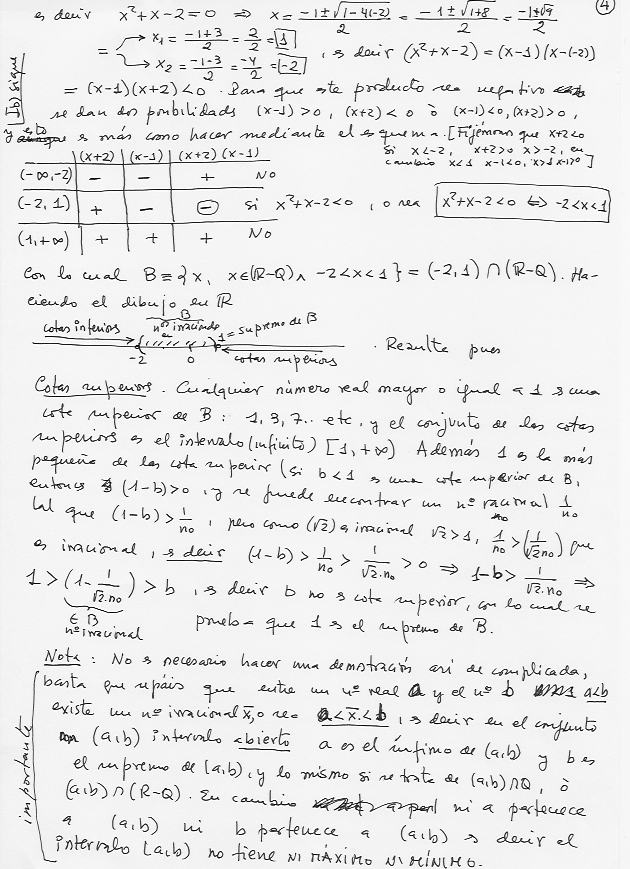 ④
es decir x²+x-2=0 ⇒ x = (-1±√(1-4(-2)))/2 = (-1±√(1+8))/2 = (-1±√9)/2
= → x₁ = (-1+3)/2 = 2/2 = 1
→ x₂ = (-1-3)/2 = -4/2 = -2 , es decir (x²+x-2) = (x-1)(x-(-2))
Ib) sigue
= (x-1)(x+2) < 0 . Para que este producto sea negativo
se dan dos posibilidads (x-1)>0, (x+2)<0 ò (x-1)<0, (x+2)>0,
y esto es más como hacer mediante el esquema. [Fijémonos que x+2<0
si x<-2, x+2>0 x>-2, en
cambio x<1 x-1<0, x>1 x-1>0]
(x+2) (x-1) (x+2)(x-1)
(-∞,-2) - - + NO
(-2, 1) + - ⊖ si x²+x-2<0 , o sea x²+x-2<0 ⇔ -2<x<1
(1,+∞) + + + NO
Con lo cual B ≡ {x, x∈(R-Q) ∧ -2<x<1} = (-2,1) ∩ (R-Q). Ha-
ciendo el dibujo en R
B
cotas inferiors nos irracionals 1 = supremo de B
-2 0 cotas superiors . Resulta pues
Cotas superiors. Cualquier número real mayor o igual a 1 es una
cota superior de B: 1, 3, 7.. etc, y el conjunto de las cotas
superiors es el intervalo (infinito) [1,+∞) Además 1 es la más
pequeña de las cota superior (si b<1 es una cota superior de B,
entoncs (1-b)>0, y se puede encontrar un nº racional 1/n₀
tal que (1-b) > 1/n₀ , pero como (√2) es irracional √2>1, 1/n₀ > (1/(√2n₀)) que
es irracional, es decir (1-b) > 1/n₀ > 1/(√2.n₀) > 0 ⇒ 1-b > 1/(√2.n₀) ⇒
1 > (1 - 1/(√2.n₀)) > b , es decir b no es cota superior, con lo cual se
∈ B
nº irracional prueba que 1 es el supremo de B.
Nota: No es necesario hacer una demostración así de complicada,
basta que sepáis que entre un nº real a y el nº b a<b
existe un nº irracional x̄, o sea a<x̄<b , es decir en el conjunto
(a,b) intervalo abierto a es el ínfimo de (a,b) y b es
el supremo de (a,b), y lo mismo si se trata de (a,b)∩Q, ò
(a,b) ∩ (R-Q). En cambio ni a pertenece
a (a,b) ni b pertenece a (a,b) es decir el
intervalo (a,b) no tiene NI MÁXIMO NI MÍNIMO.
importante